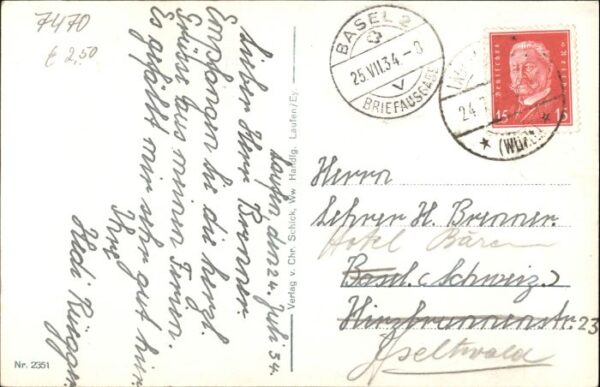 7470
€ 2,50
Laufen den 24. Juli 34.
Lieber Herr Brenner.
Empfangen Sie die herzl.
Grüsse aus meinen Ferien.
Es gefällt mir sehr gut hier.
Ihre
Hedi
Verlag v. Chr. Schick, Ww Handlg. Laufen/Ey.
Nr. 2351
BASEL 2
25.VII.34.-8
V
BRIEFAUSGABE
24.7.
(WÜRTT)
Deutsches Reich
15 15
Herrn
Lehrer H. Brenner
Hotel Bären
Basel. (Schweiz.)
Hirzbrunnenstr. 23
Iseltwald